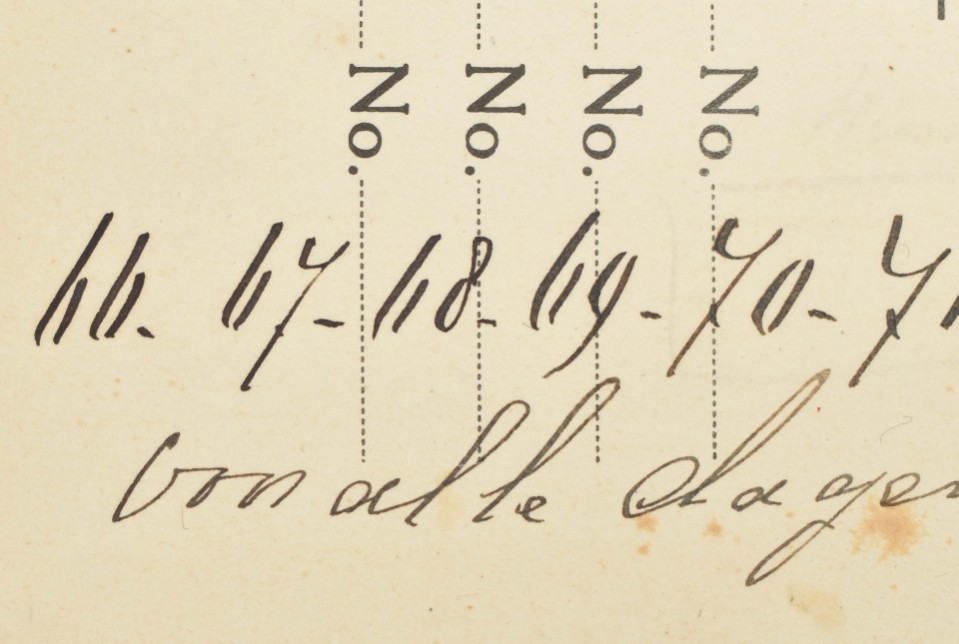 No. No. No. No.
66- 67- 68- 69- 70- 71
voor alle dagen